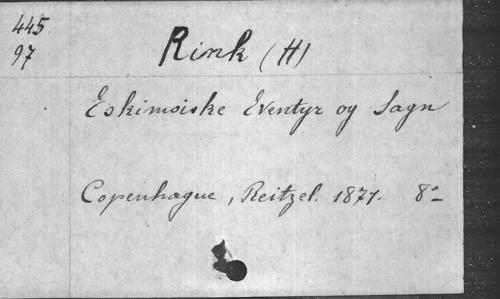 445
97
Rink (H)
Eskimoiske Eventyr og Sagn
Copenhague, Reitzel. 1871. 8°